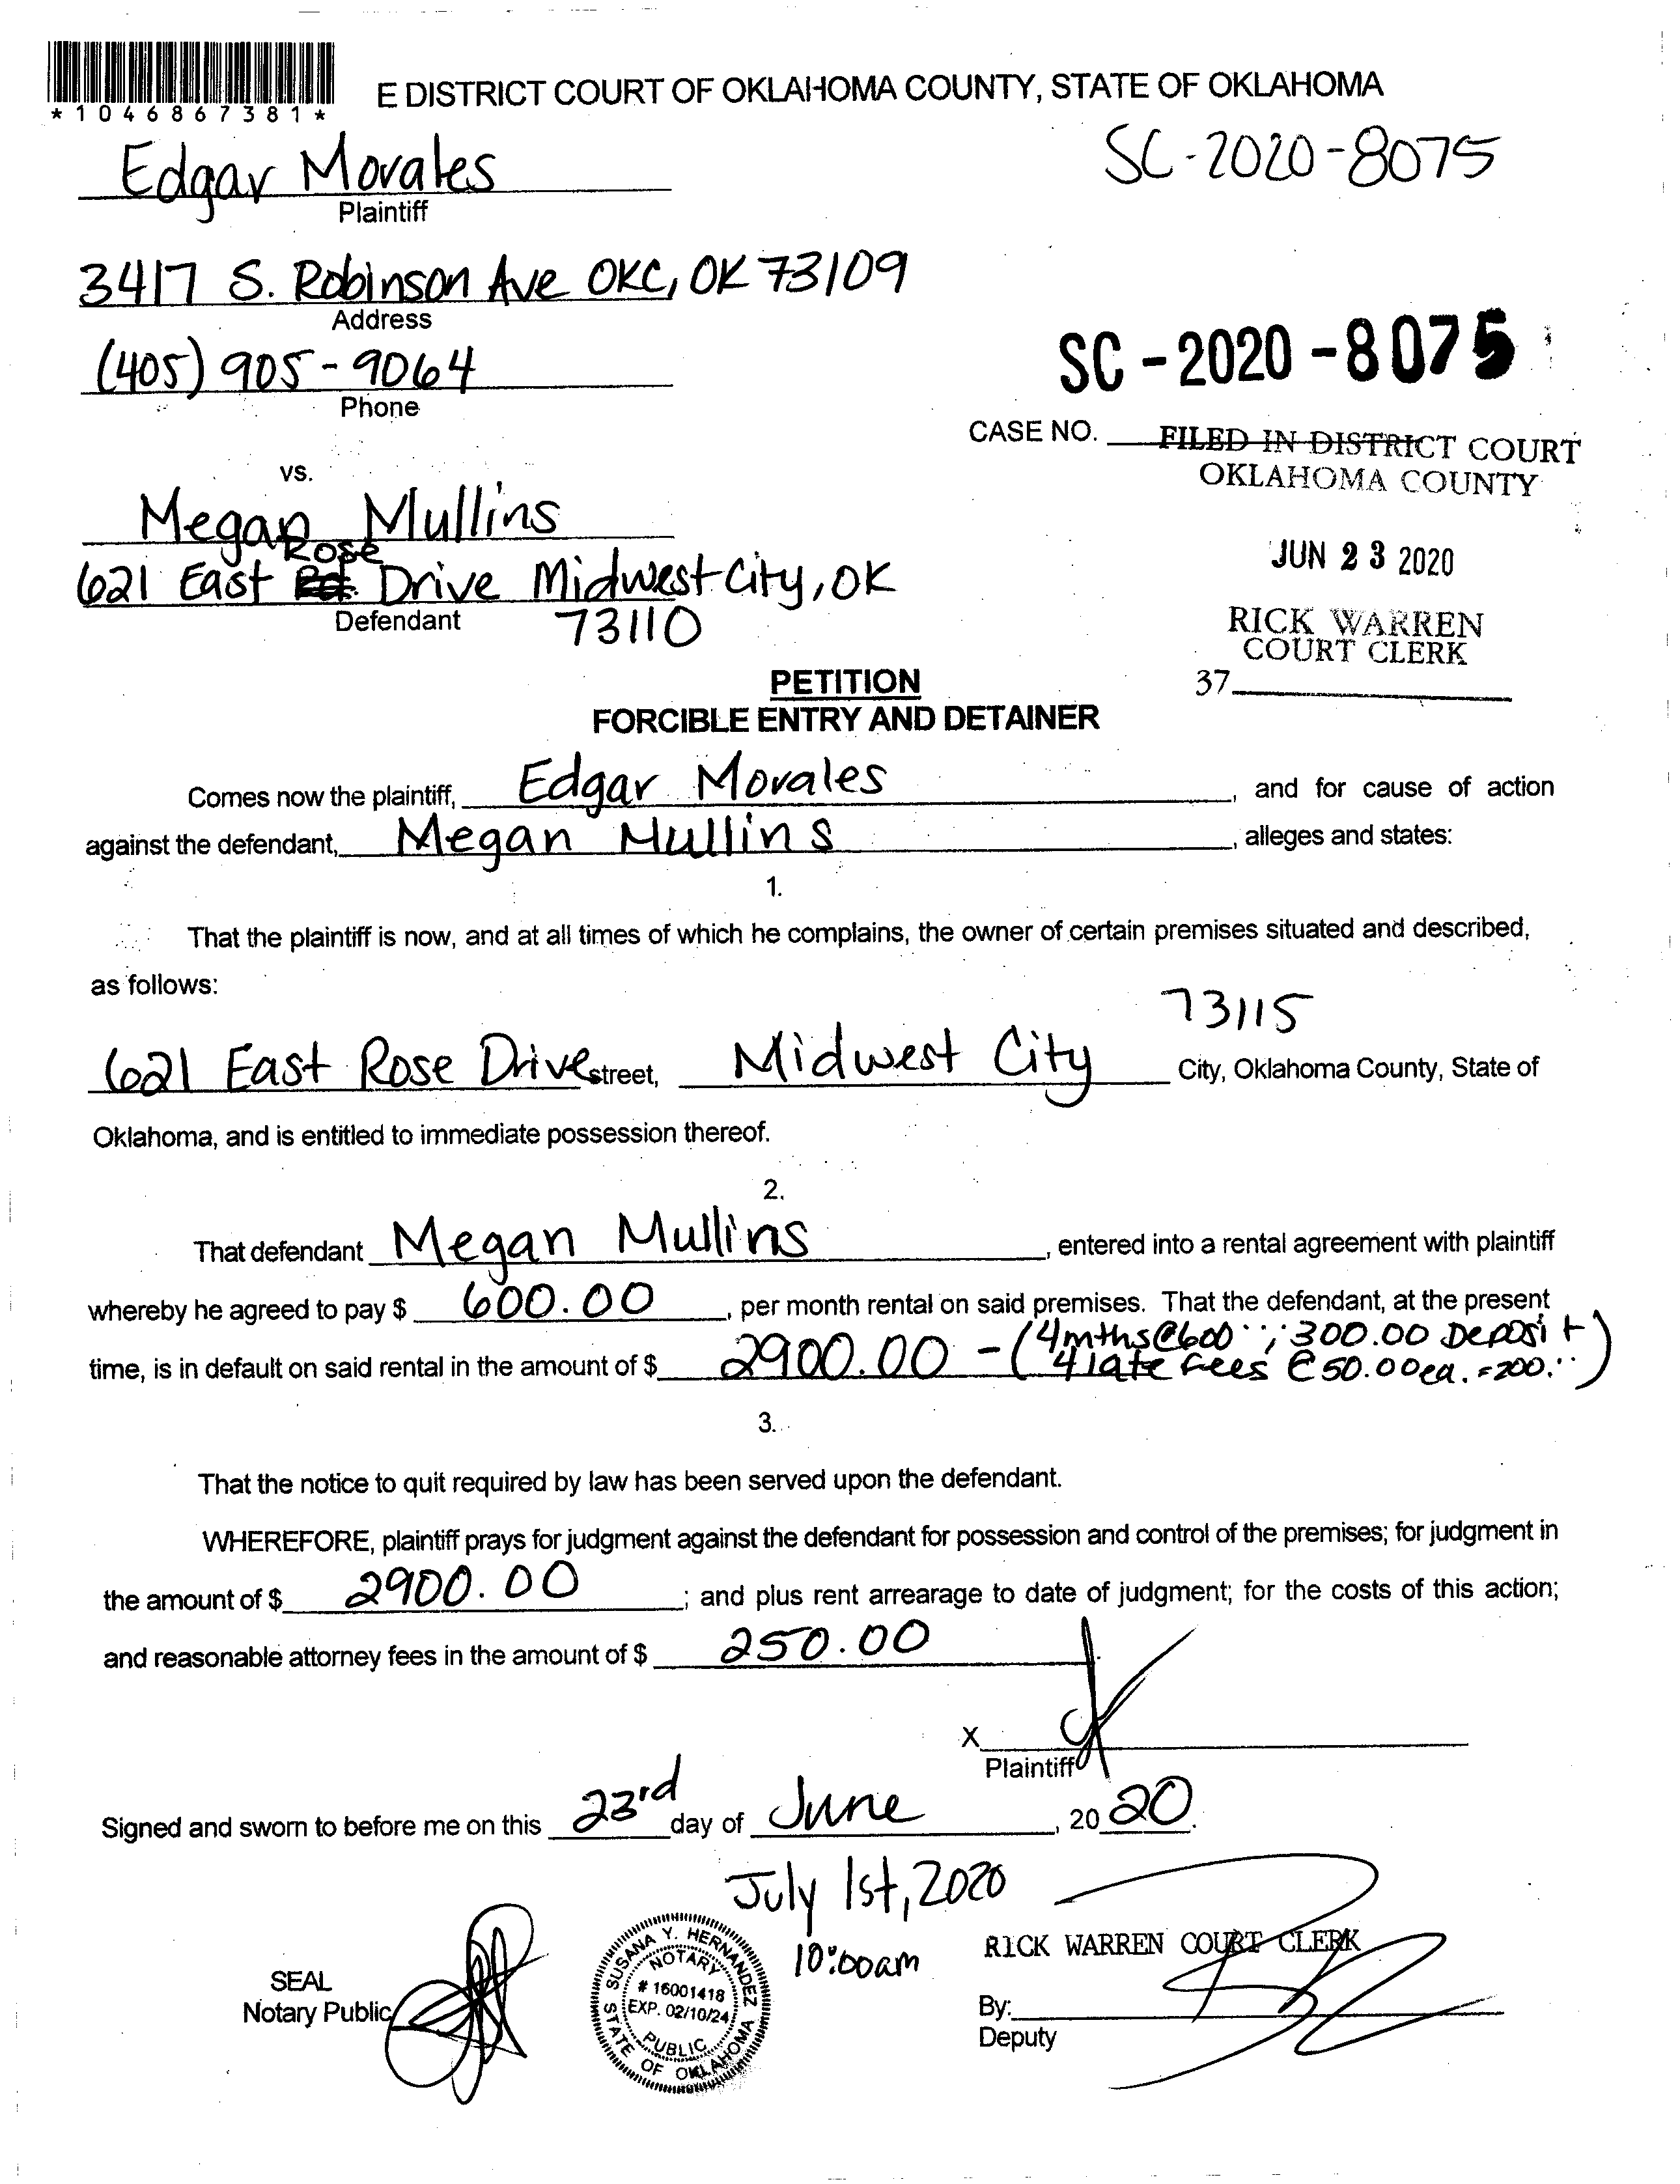 *1046867381*
E DISTRICT COURT OF OKLAHOMA COUNTY, STATE OF OKLAHOMA
Edgar Morales
SC-2020-8075
Plaintiff
3417 S. Robinson Ave OKC, OK 73109
Address
(405) 905-9064
SC-2020-8075
Phone
CASE NO. FILED IN DISTRICT COURT
OKLAHOMA COUNTY
vs.
Megan Mullins
JUN 23 2020
Rose
621 East Drive Midwest City, OK
Defendant 73110
RICK WARREN
COURT CLERK
37
PETITION
FORCIBLE ENTRY AND DETAINER
Comes now the plaintiff, Edgar Morales, and for cause of action
against the defendant, Megan Mullins, alleges and states:
1.
That the plaintiff is now, and at all times of which he complains, the owner of certain premises situated and described,
as follows:
73115
621 East Rose Drive street, Midwest City City, Oklahoma County, State of
Oklahoma, and is entitled to immediate possession thereof.
2.
That defendant Megan Mullins, entered into a rental agreement with plaintiff
whereby he agreed to pay $ 600.00, per month rental on said premises. That the defendant, at the present
time, is in default on said rental in the amount of $ 2900.00 - (4mths@600; 300.00 Deposit
4 late fees @ 50.00ea. =200.)
3.
That the notice to quit required by law has been served upon the defendant.
WHEREFORE, plaintiff prays for judgment against the defendant for possession and control of the premises; for judgment in
the amount of $ 2900.00; and plus rent arrearage to date of judgment; for the costs of this action;
and reasonable attorney fees in the amount of $ 250.00
X
Plaintiff
Signed and sworn to before me on this 23rd day of June, 2020.
July 1st, 2020
10:00am
RICK WARREN COURT CLERK
SEAL
Notary Public
SUSANA Y. HERNANDEZ
NOTARY
# 16001418
EXP. 02/10/24
PUBLIC
STATE OF OKLAHOMA
By:
Deputy